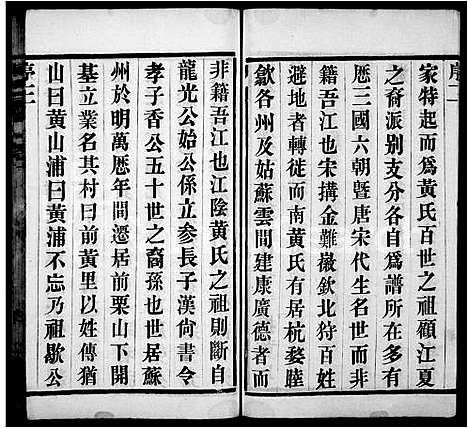 序二
家特起而為黃氏百世之祖顧江夏
之裔派別支分各自為譜所在多有
歷三國六朝暨唐宋代生名世而非
籍吾江也宋搆金難徽欽北狩百姓
避地者轉徙而南黃氏有居杭婺睦
歙各州及姑蘇雲間建康廣德者而
非籍吾江也江陰黃氏之祖則斷自
龍光公始公係立參長子漢尙書令
孝子香公五十世之裔孫也世居蘇
州於明萬厯年間遷居前栗山下開
基立業名其村曰前黃里以姓傳猶
山曰黃山浦曰黃浦不忘乃祖歇公
序三